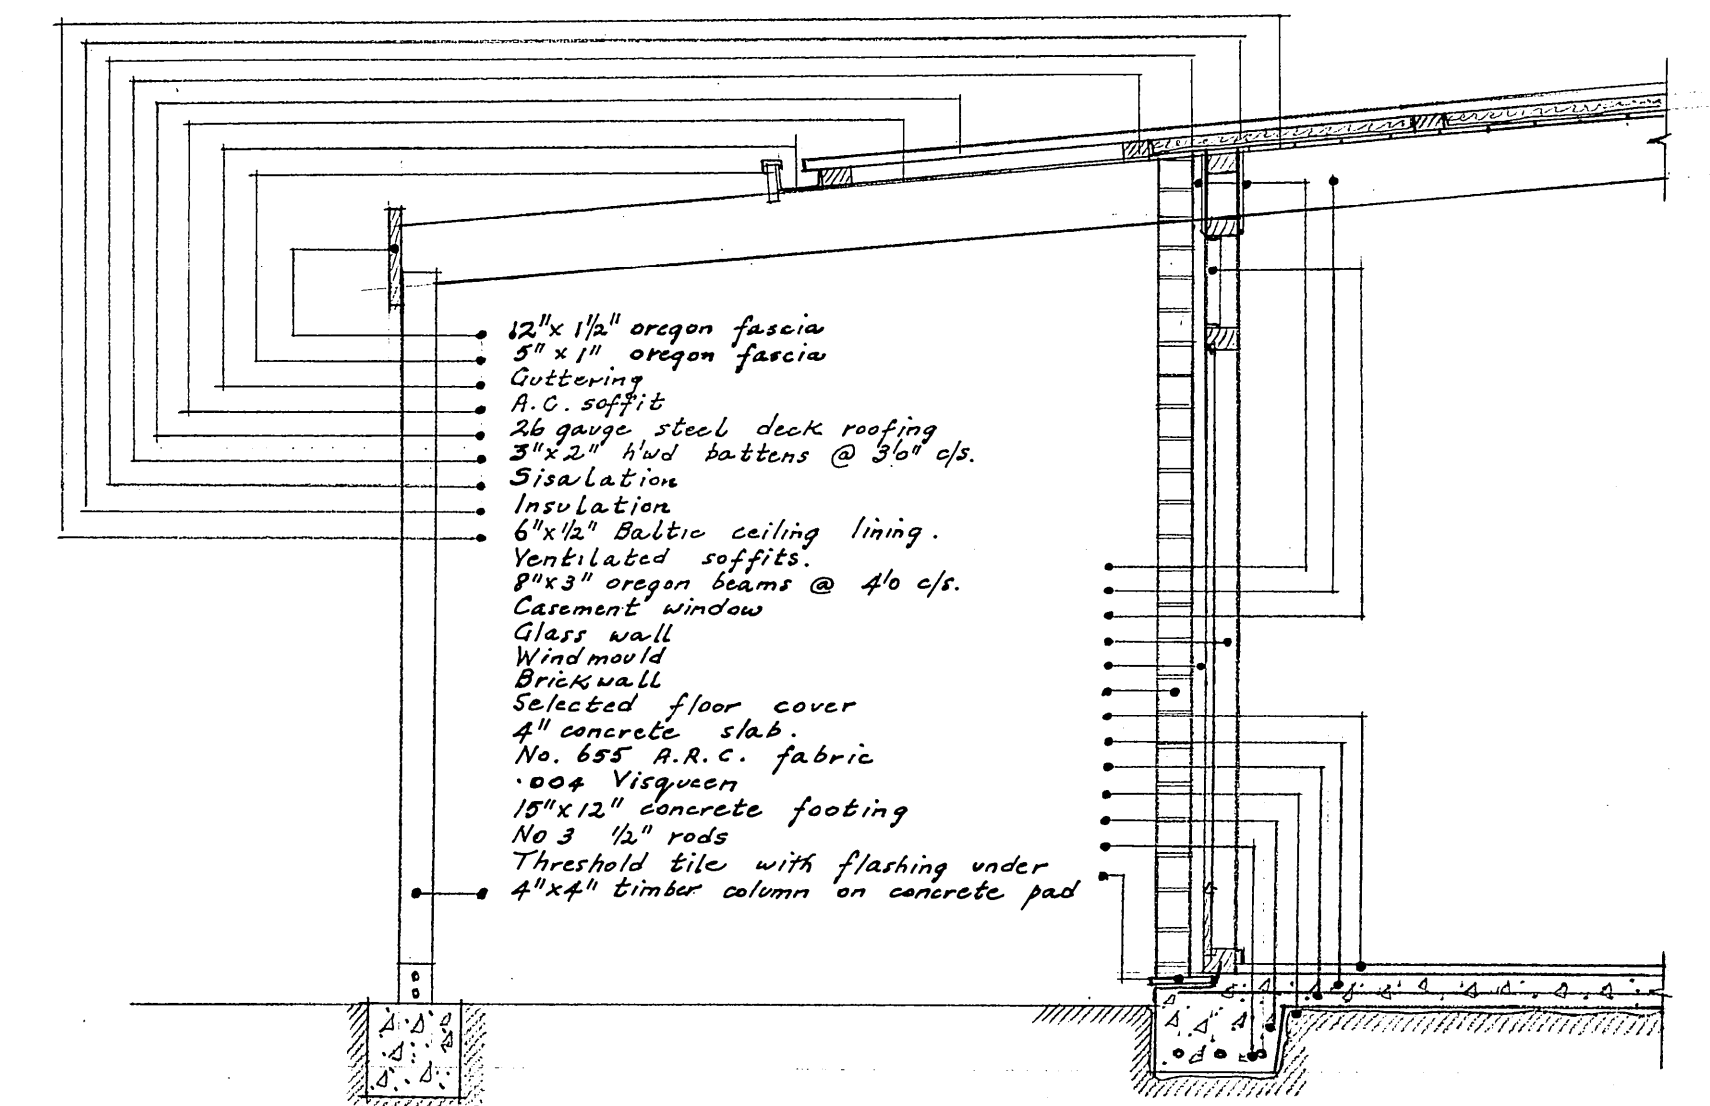 12"x 1½" oregon fascia
5" x 1" oregon fascia
Guttering
A.C. soffit
26 gauge steel deck roofing
3"x2" h'wd battens @ 3'0" c/s.
Sisalation
Insulation
6"x½" Baltic ceiling lining.
Ventilated soffits.
8"x3" oregon beams @ 4'0 c/s.
Casement window
Glass wall
Windmould
Brickwall
Selected floor cover
4" concrete slab.
No. 655 A.R.C. fabric
.004 Visqueen
15"x12" concrete footing
No 3 ½" rods
Threshold tile with flashing under
4"x4" timber column on concrete pad